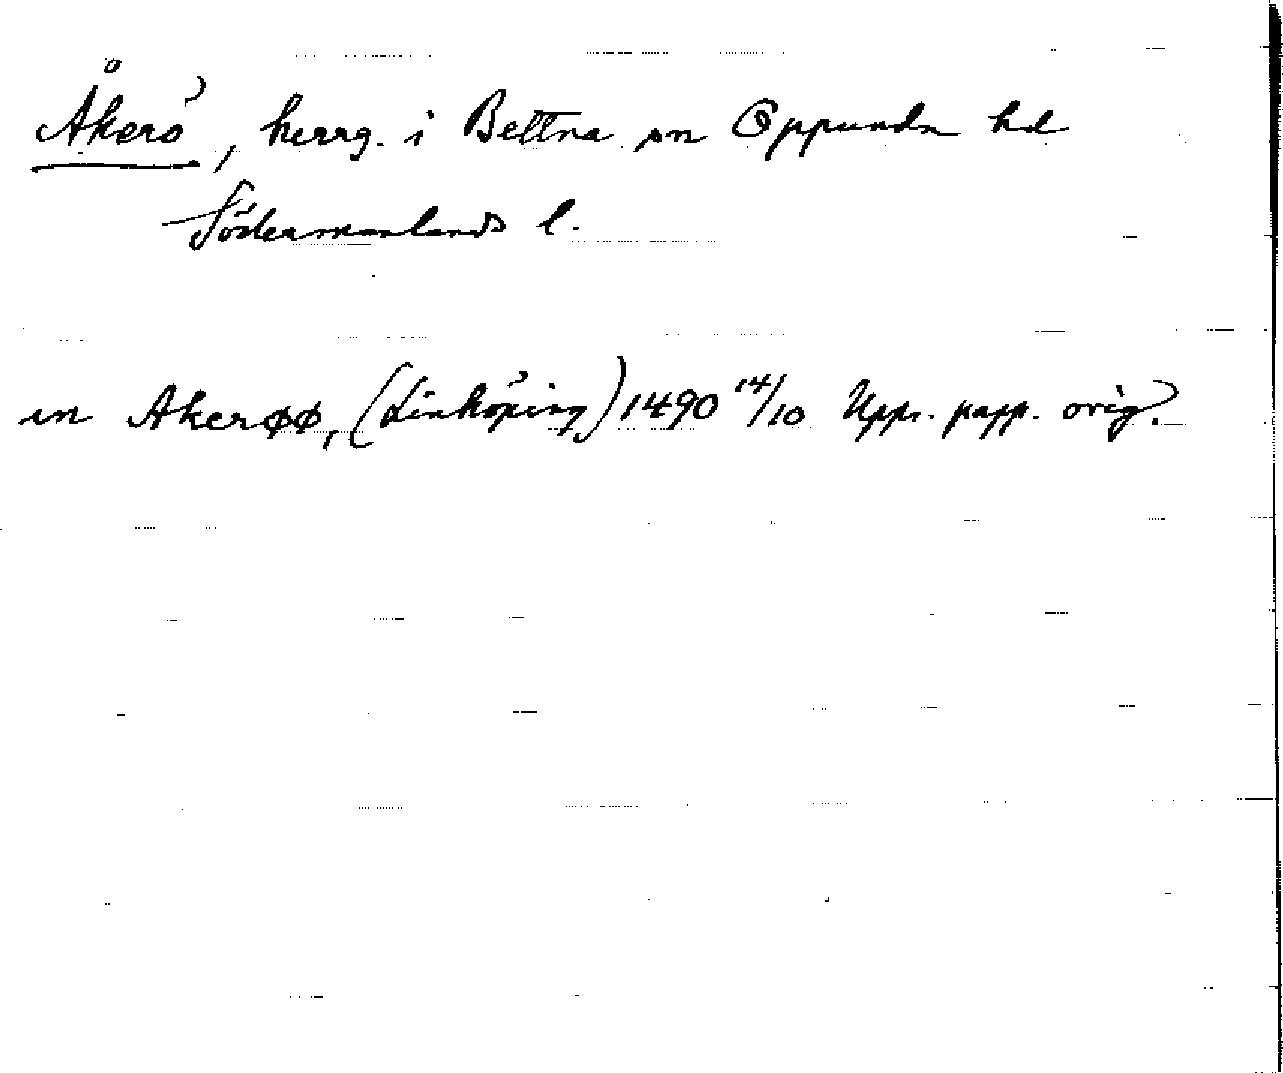 Åkerö, herrg. i Bettna sn Oppunda hd
Södermanlands l.
in Akerøø, (Linköping) 1490 14/10 Upps. papp. orig.